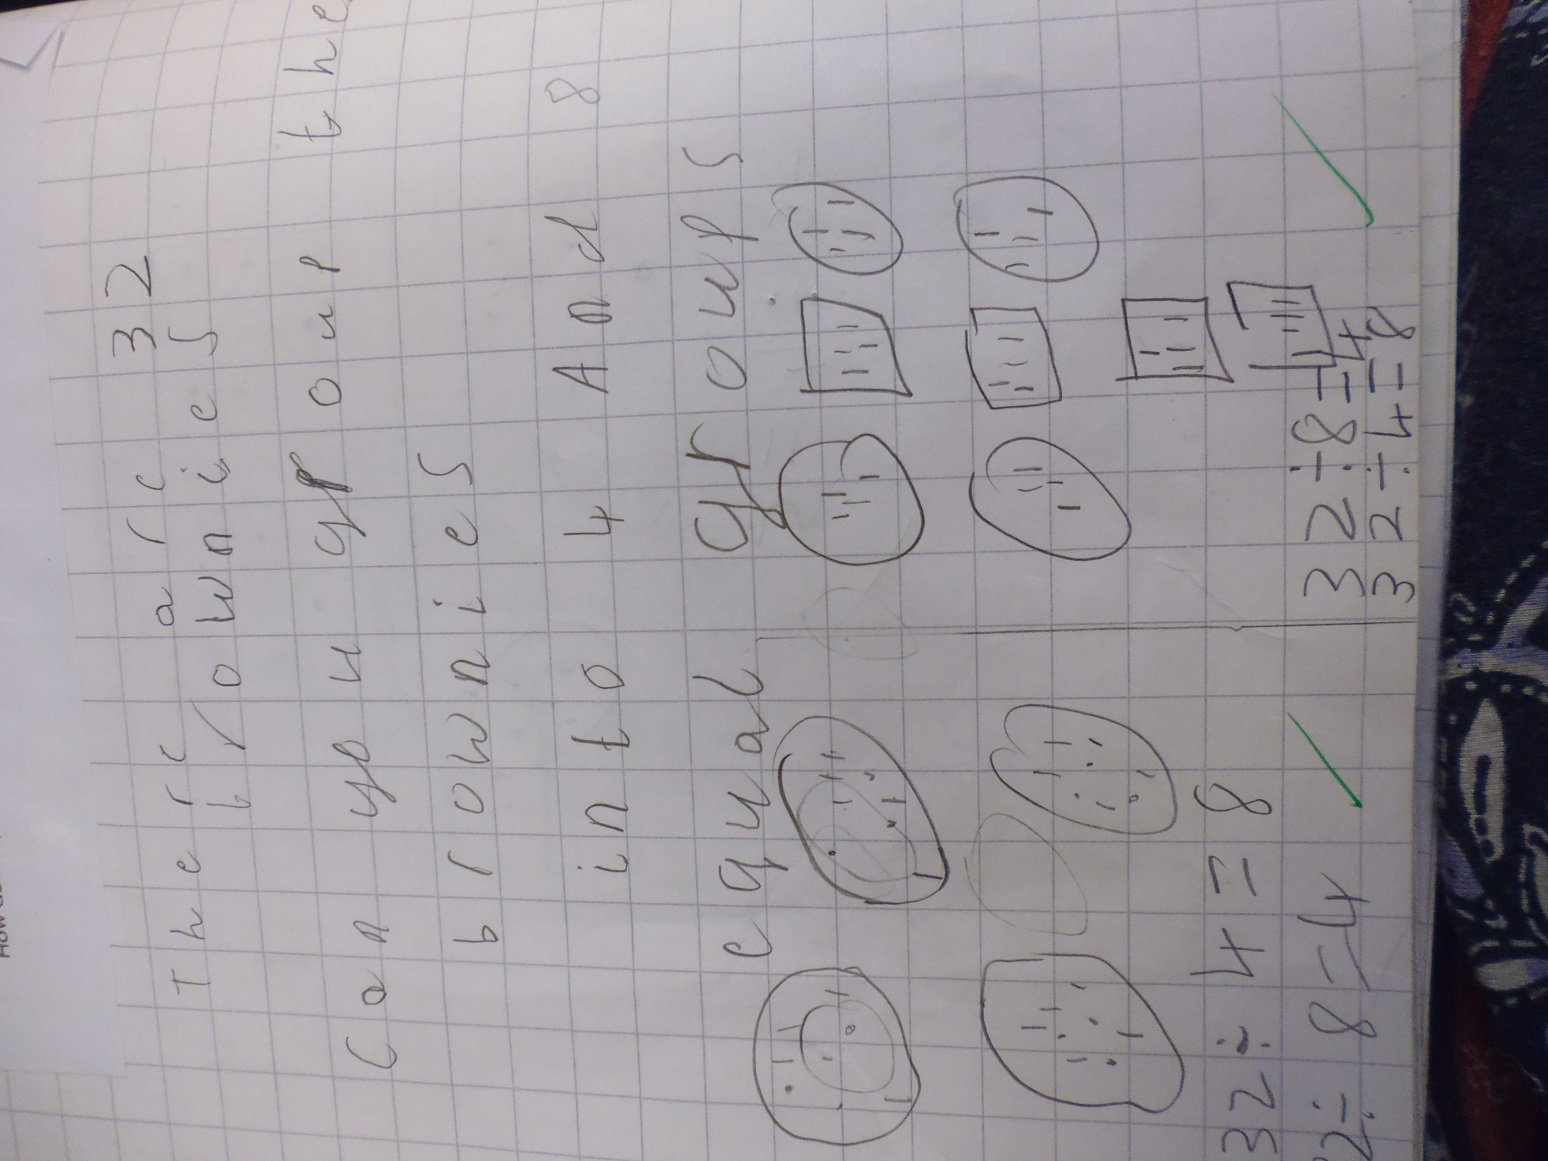 There are 32
brownies
Can you group the
brownies
into 4 And 8
equal groups
32 ÷ 4 = 8
2 ÷ 8 = 4
32 ÷ 8 = 4
32 ÷ 4 = 8